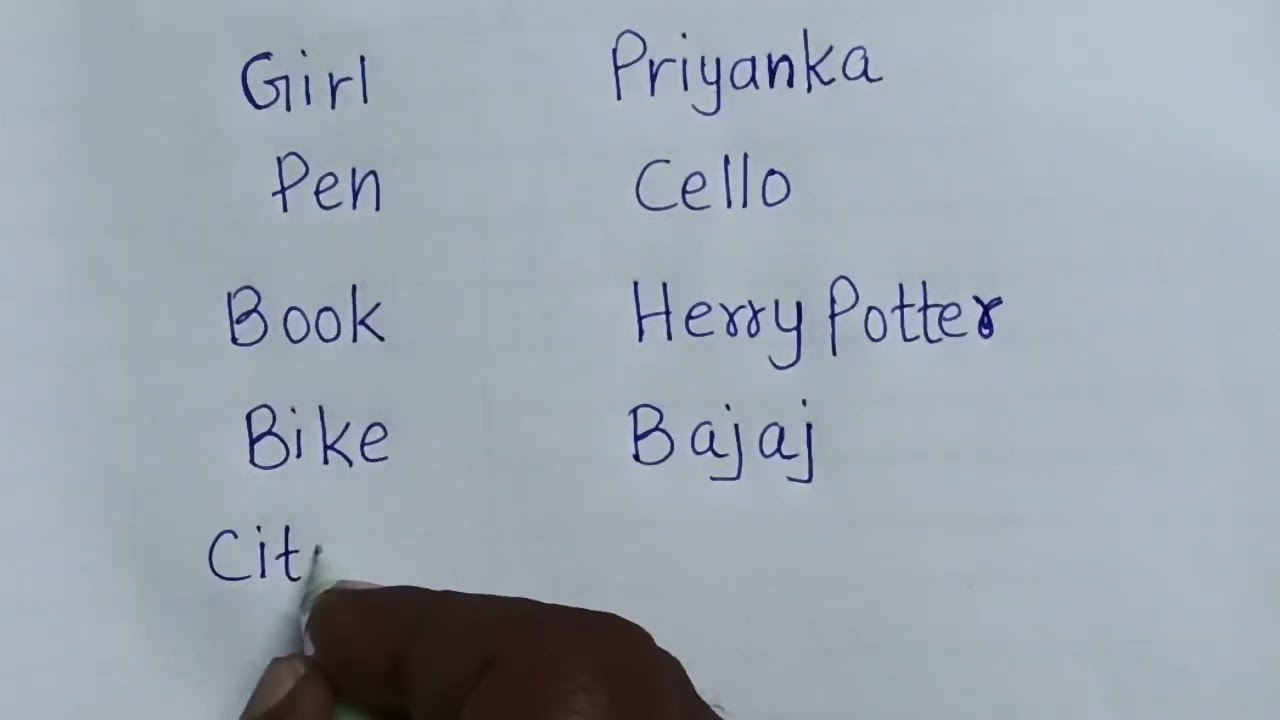 Girl Priyanka
Pen Cello
Book Herry Potter
Bike Bajaj
Cit